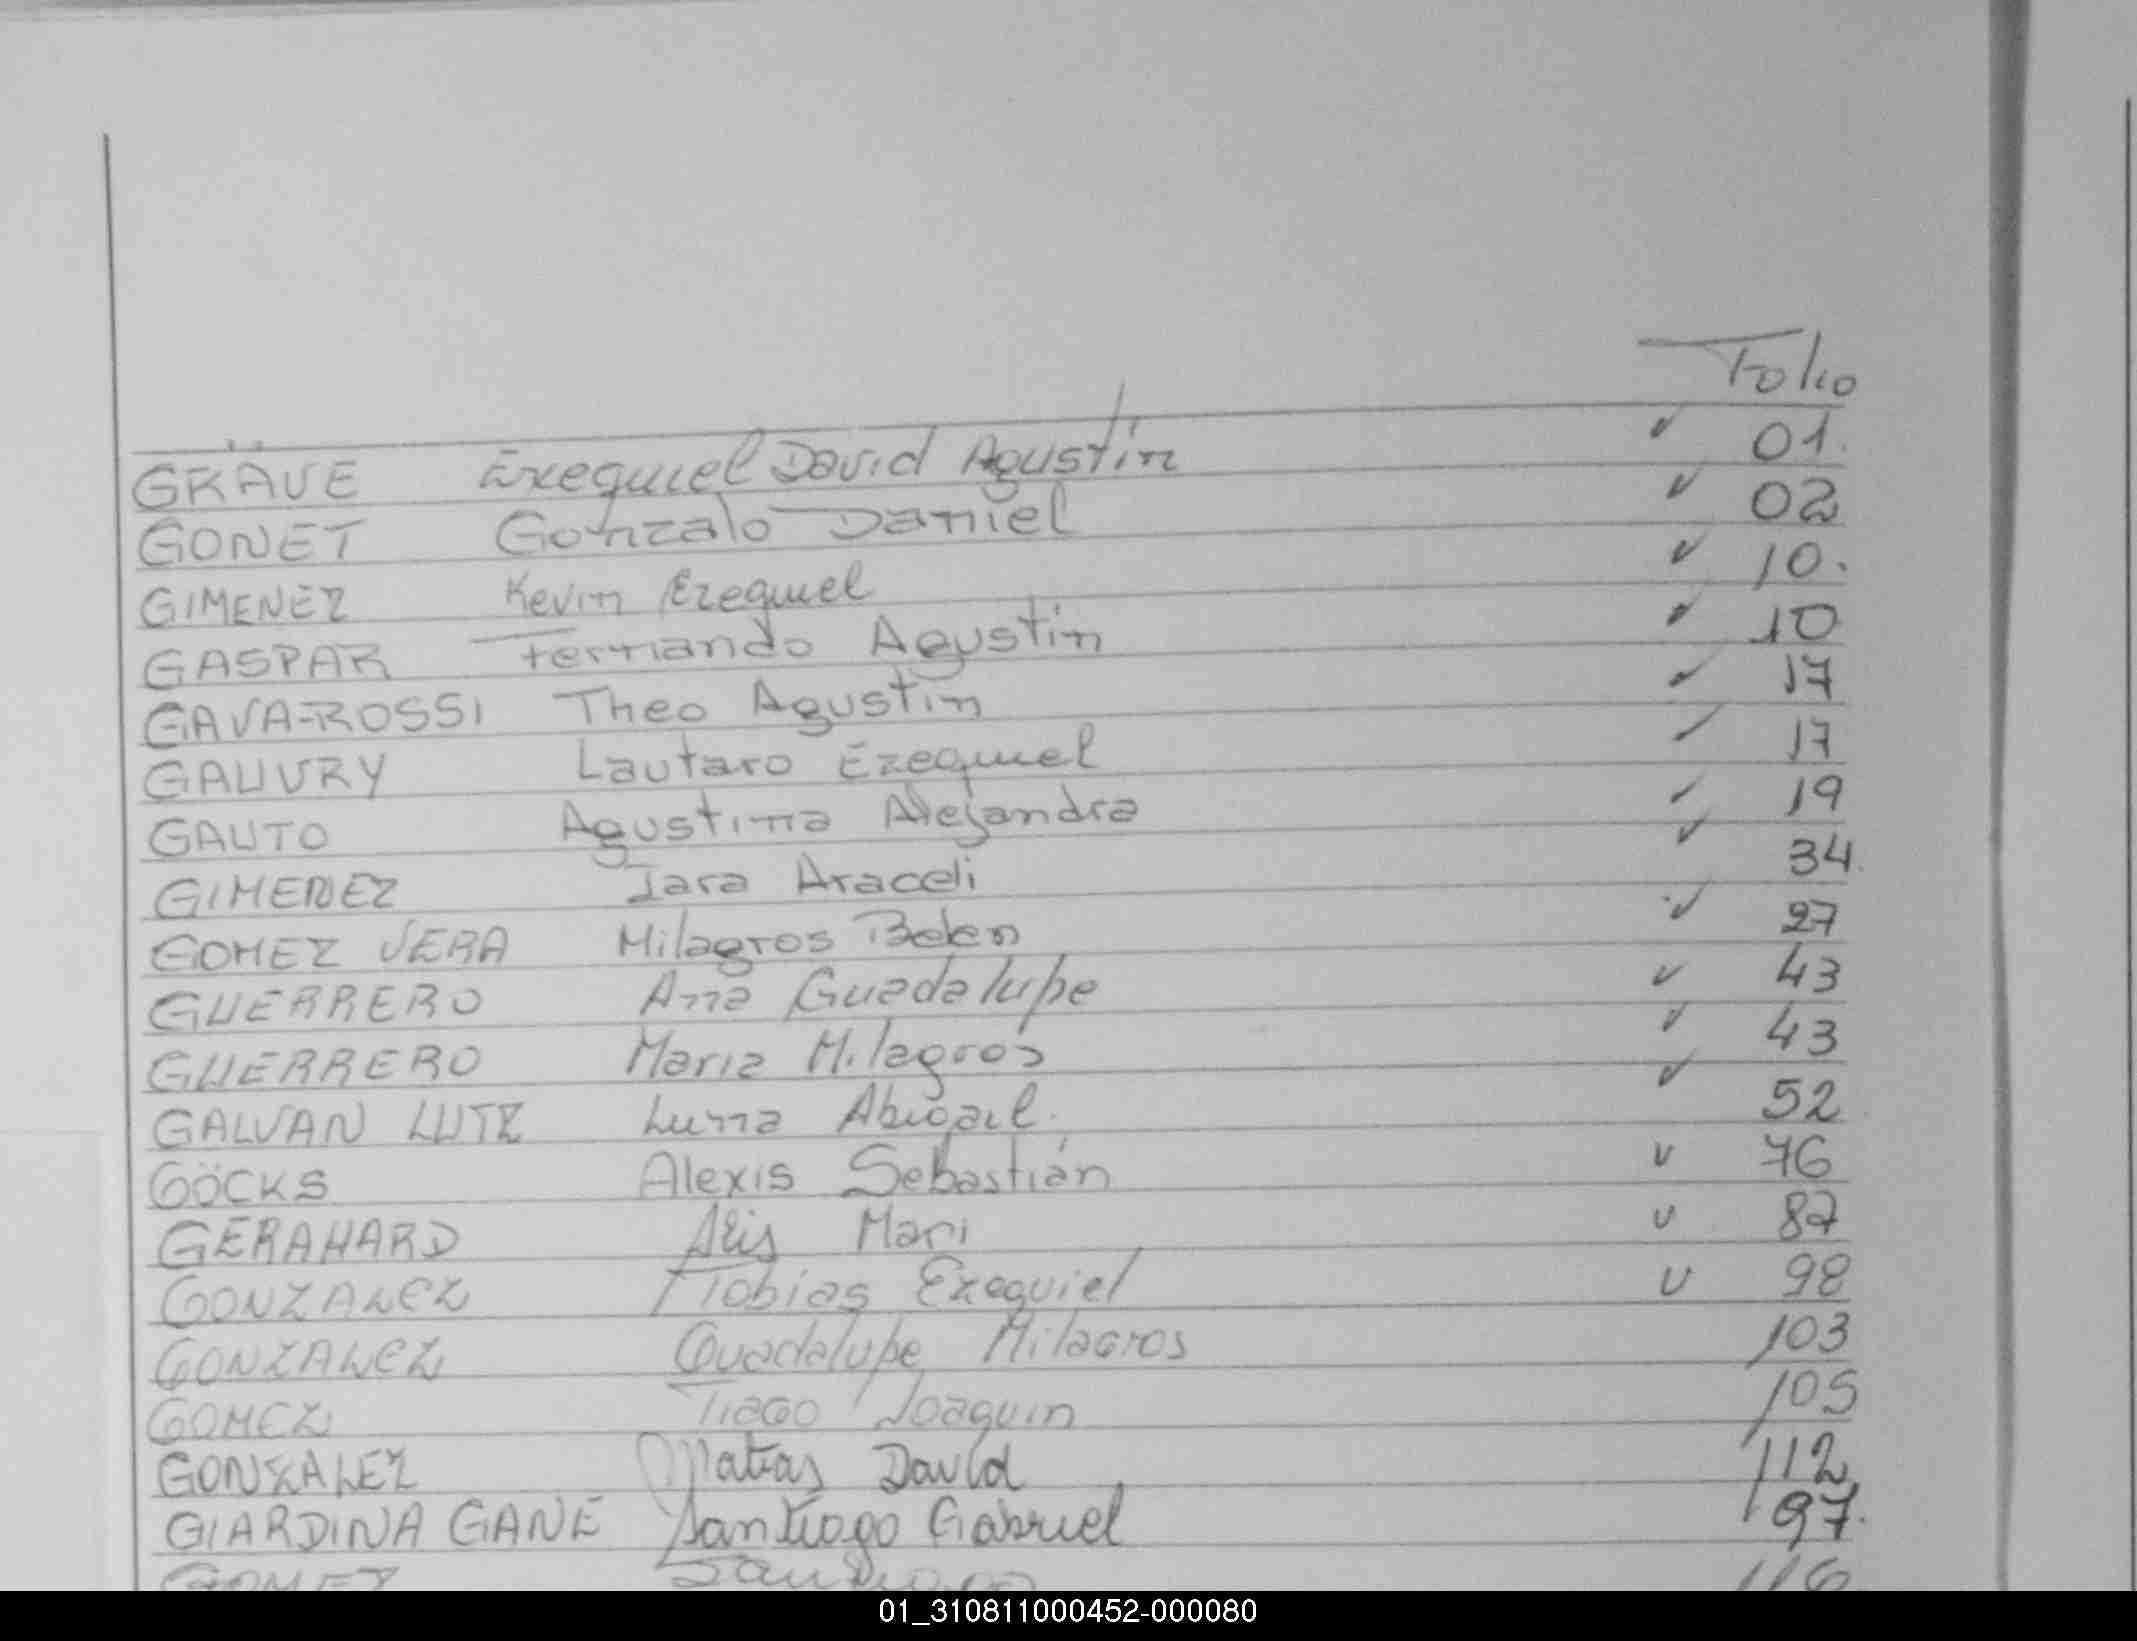 Folio
GRÄVE Exequiel David Agustín ✓ 01.
GONET Gonzalo Daniel ✓ 02
GIMENEZ Kevin Ezequiel ✓ 10.
GASPAR Fernando Agustin ✓ 10
GAVA-ROSSI Theo Agustin ✓ 17
GAUVRY Lautaro Ezequiel ✓ 17
GAUTO Agustina Alejandra ✓ 19
GIMENEZ Iara Araceli ✓ 34.
GOMEZ VERA Milagros Belen ✓ 27
GUERRERO Ana Guadalupe ✓ 43
GUERRERO Maria Milagros ✓ 43
GALVAN LUTZ Luna Abigail. ✓ 52
GÖCKS Alexis Sebastián ✓ 76
GERAHARD Mari ✓ 87
GONZALEZ Tobias Exequiel ✓ 98
GONZALEZ Guadalupe Milagros 103
GOMEZ Tiago Joaquin 105
GONZALEZ Matias David 112
GIARDINA GANE Santiago Gabriel 97.
GOMEZ Santiago 116
01_310811000452-000080